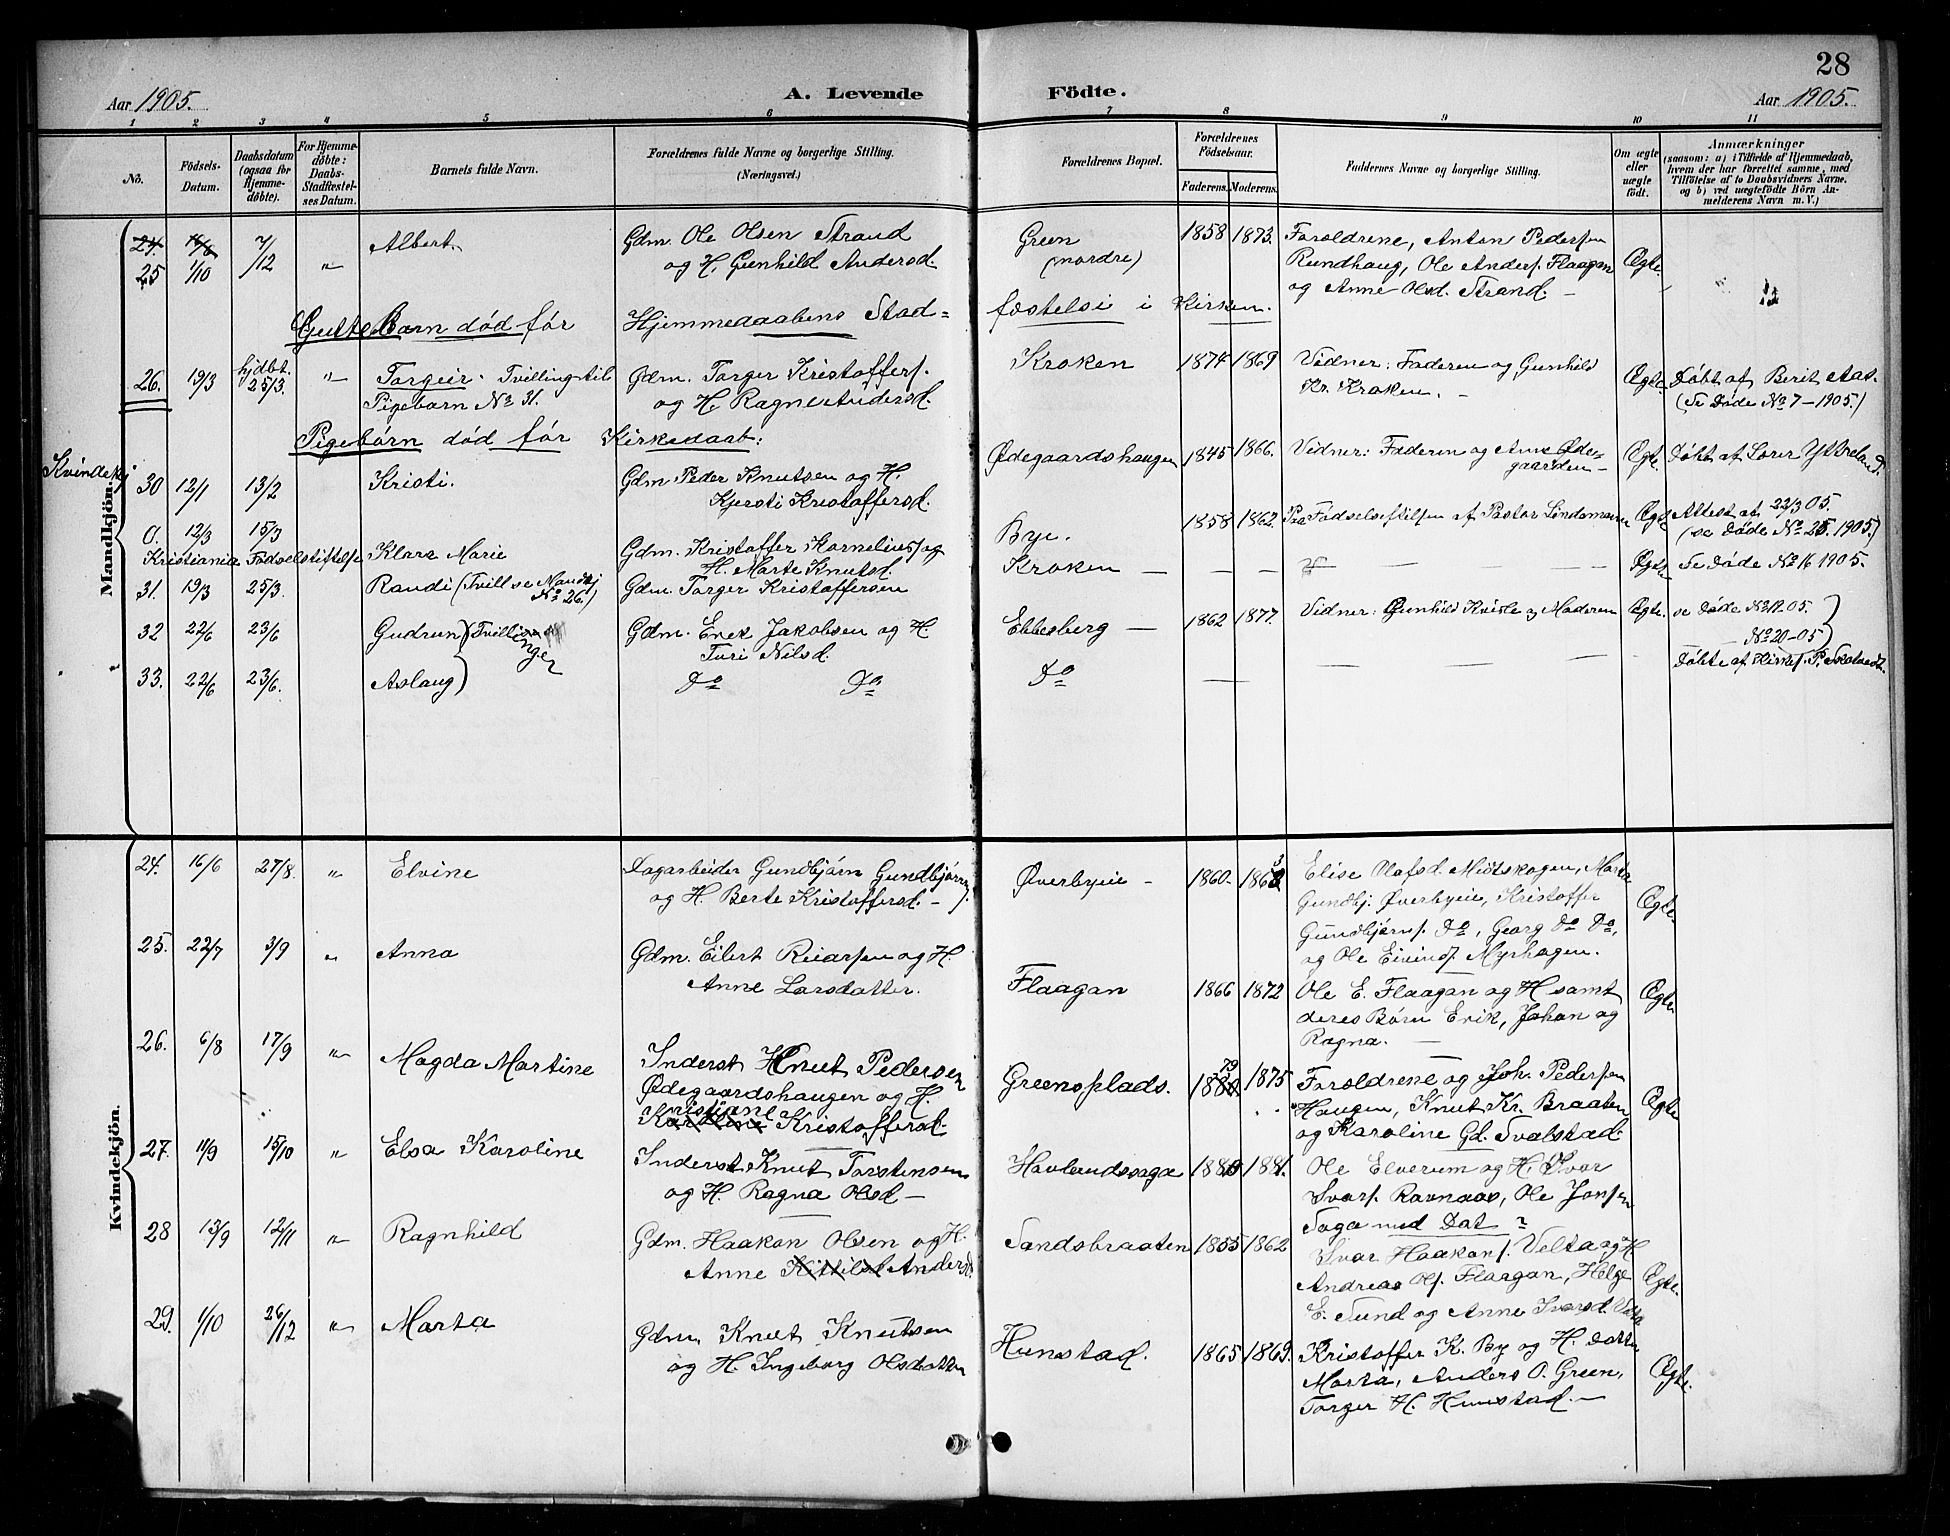 28
Aar 1905.
A. Levende Födte.
Aar 1905.
1 2 3 4 5 6 7 8 9 10 11
No.
Födsels-Datum.
Daabsdatum (ogsaa for Hjemme-døbte).
For Hjemme-døbte: Daabs-Stadfæstel-ses Datum.
Barnets fulde Navn.
Forældrenes fulde Navne og borgerlige Stilling.
(Næringsvei.)
Forældrenes Bopæl.
Forældrenes Födselsaar.
Faderens. Moderens.
Faddernes Navne og borgerlige Stilling.
Om ægte eller uægte født.
Anmærkninger
(saasom: a) i Tilfælde af Hjemmedaab, hvem der har forrettet samme, med Tilföielse af to Daabsvidners Navne. og b) ved uægtefödte Börn An-melderens Navn m. V.)
Mandkjön.
24. 16/6
25 1/10 7/12 " Albert. Gdm. Ole Olsen Strand
og H. Gunhild Andersd. Green (nordre) 1858 1873. Foroldrene, Anton Pedersen
Rundhaug, Ole Anders. Flaagan
og Anne Olsd. Strand. – Ægte.
Guttebarn død før Hjemmedaabens Stad=
fæstelse i Kirken.
26. 19/3 hjdbt. 25/3. " Torgeir. Tvilling til
Pigebarn No 31. Gdm. Torger Kristoffers.
og H. Ragne Andersd. Kroken 1874 1869 Vidner: Faderen og Gunhild
Kr. Kroken. – Ægte. Døbt af Berit Aas.
(Se Døde No 7 – 1905.)
Pigebørn død før Kirkedaab:
Kvindekj
30 12/1 13/2 Kristi. Gdm Peder Knutsen og H.
Kjersti Kristoffersd. Ødegaardshaugen 1845 1866. Vidner: Faderen og Anne Øde-
gaarden – Ægte. Døbt af Lærer
0. 12/3 15/3 Klara Marie
Kristiania Fødselsstiftelse
Gdm. Kristoffer Kornelius. og
H. Marte Knutsd. Bye. 1858 1862. Fra Fødselsstiftelsen af Pastor Lindemann Ægte Attest af 22/3 05.
(se Døde No 25. 1905.)
31. 19/3 25/3. Randi (Tvill se Mandkj
No 26.) Gdm. Torger Kristoffersen Kroken – – – – – Ægte Se Døde No 16 1905.
32 22/6 23/6 Gudrun (Tvillinger Gdm. Erek Jakobsen og H.
Turi Nilsd. Ebbesberg – 1862 1877. Vidner: Gunhild Kvisle og Moderen Ægte. se Døde No 19-05.
No 20-05
33. 22/6 23/6. Aslaug) Do Do Do – – – – – Døbte af
Kvindekjön.
24. 16/6 27/8. " Elvine Dagarbeider Gundbjørn Gundbjørns.
og H. Berte Kristoffersd. – Øverbyeie – 1860. 1863 Elise Olafsd. Midtskogen, Marta
Gundbj. Øverbyeie, Kristoffer
Gundbjørns. Do, Georg Do Do,
og Ole Eivinds. Myrhagen. Ægte.
25. 22/7 3/9 " Anna Gdm. Eilert Reiarsen og H.
Anne Larsdatter. Flaagan 1866 1872 Ole E. Flaagan og H samt
deres Børn Erik, Johan og
Ragna. – Ægte
26. 6/8 17/9 " Magda Martine Inderst Knut Pedersen
Ødegaardshaugen og H.
Kristiane
Karoline Kristoffersd. Greensplads. 79 1880. 1875 Foroldrene og Joh. Pedersen
Haugen, Knut Kr. Braaten
og Karoline Gd. Svalstad. Ægte
27. 11/9 15/10 " Elsa Karoline Inderst Knut Torstensen
og H. Ragna Olsd – Havlandssaga 1880 1881. Ole Elverum og H. Ivar
Ivars. Ravnaas, Ole Jonsen
Saga med Dat ?
28 13/9 12/11 " Ragnhild Gdm. Haakon Olsen og H.
Anne Kittilsd Andersd. Sandsbraaten 1855 1862 Ivar Haakons. Velta og H
Andreas Ols. Flaagan, Helge
E. Sund og Anne Ivarsd. Velta Ægte.
29. 1/10 26/12 " Marta Gdm. Knut Knutsen
og H. Ingeborg Olsdatter Hunstad. 1865 1869. Kristoffer K. By og H. datter
Marta, Anders O. Green,
Torger H. Hunstad. – Ægte.